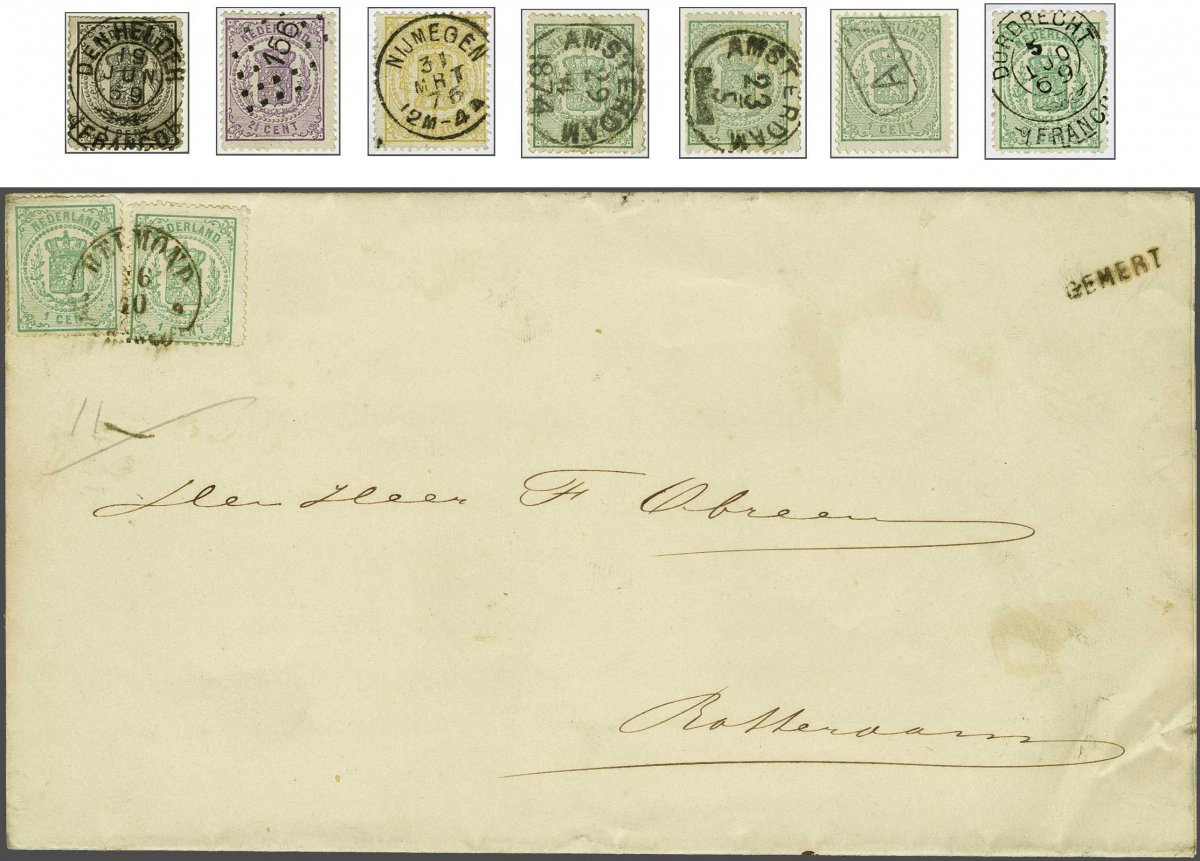 DEN HELDER
19
JUN
69
FRANCO
CENT
NEDERLAND
56
2½ CENT
NIJMEGEN
31
MRT
76
12M-4A
AMSTERDAM
29
4
1874
AMSTERDAM
23
5
A
DORDRECHT
5
69
FRANCO
NEDERLAND
1 CENT
NEDERLAND
1 CENT
HELMOND
6
10
FRANCO
GEMERT
11
Den Heer F Obreen
Rotterdam